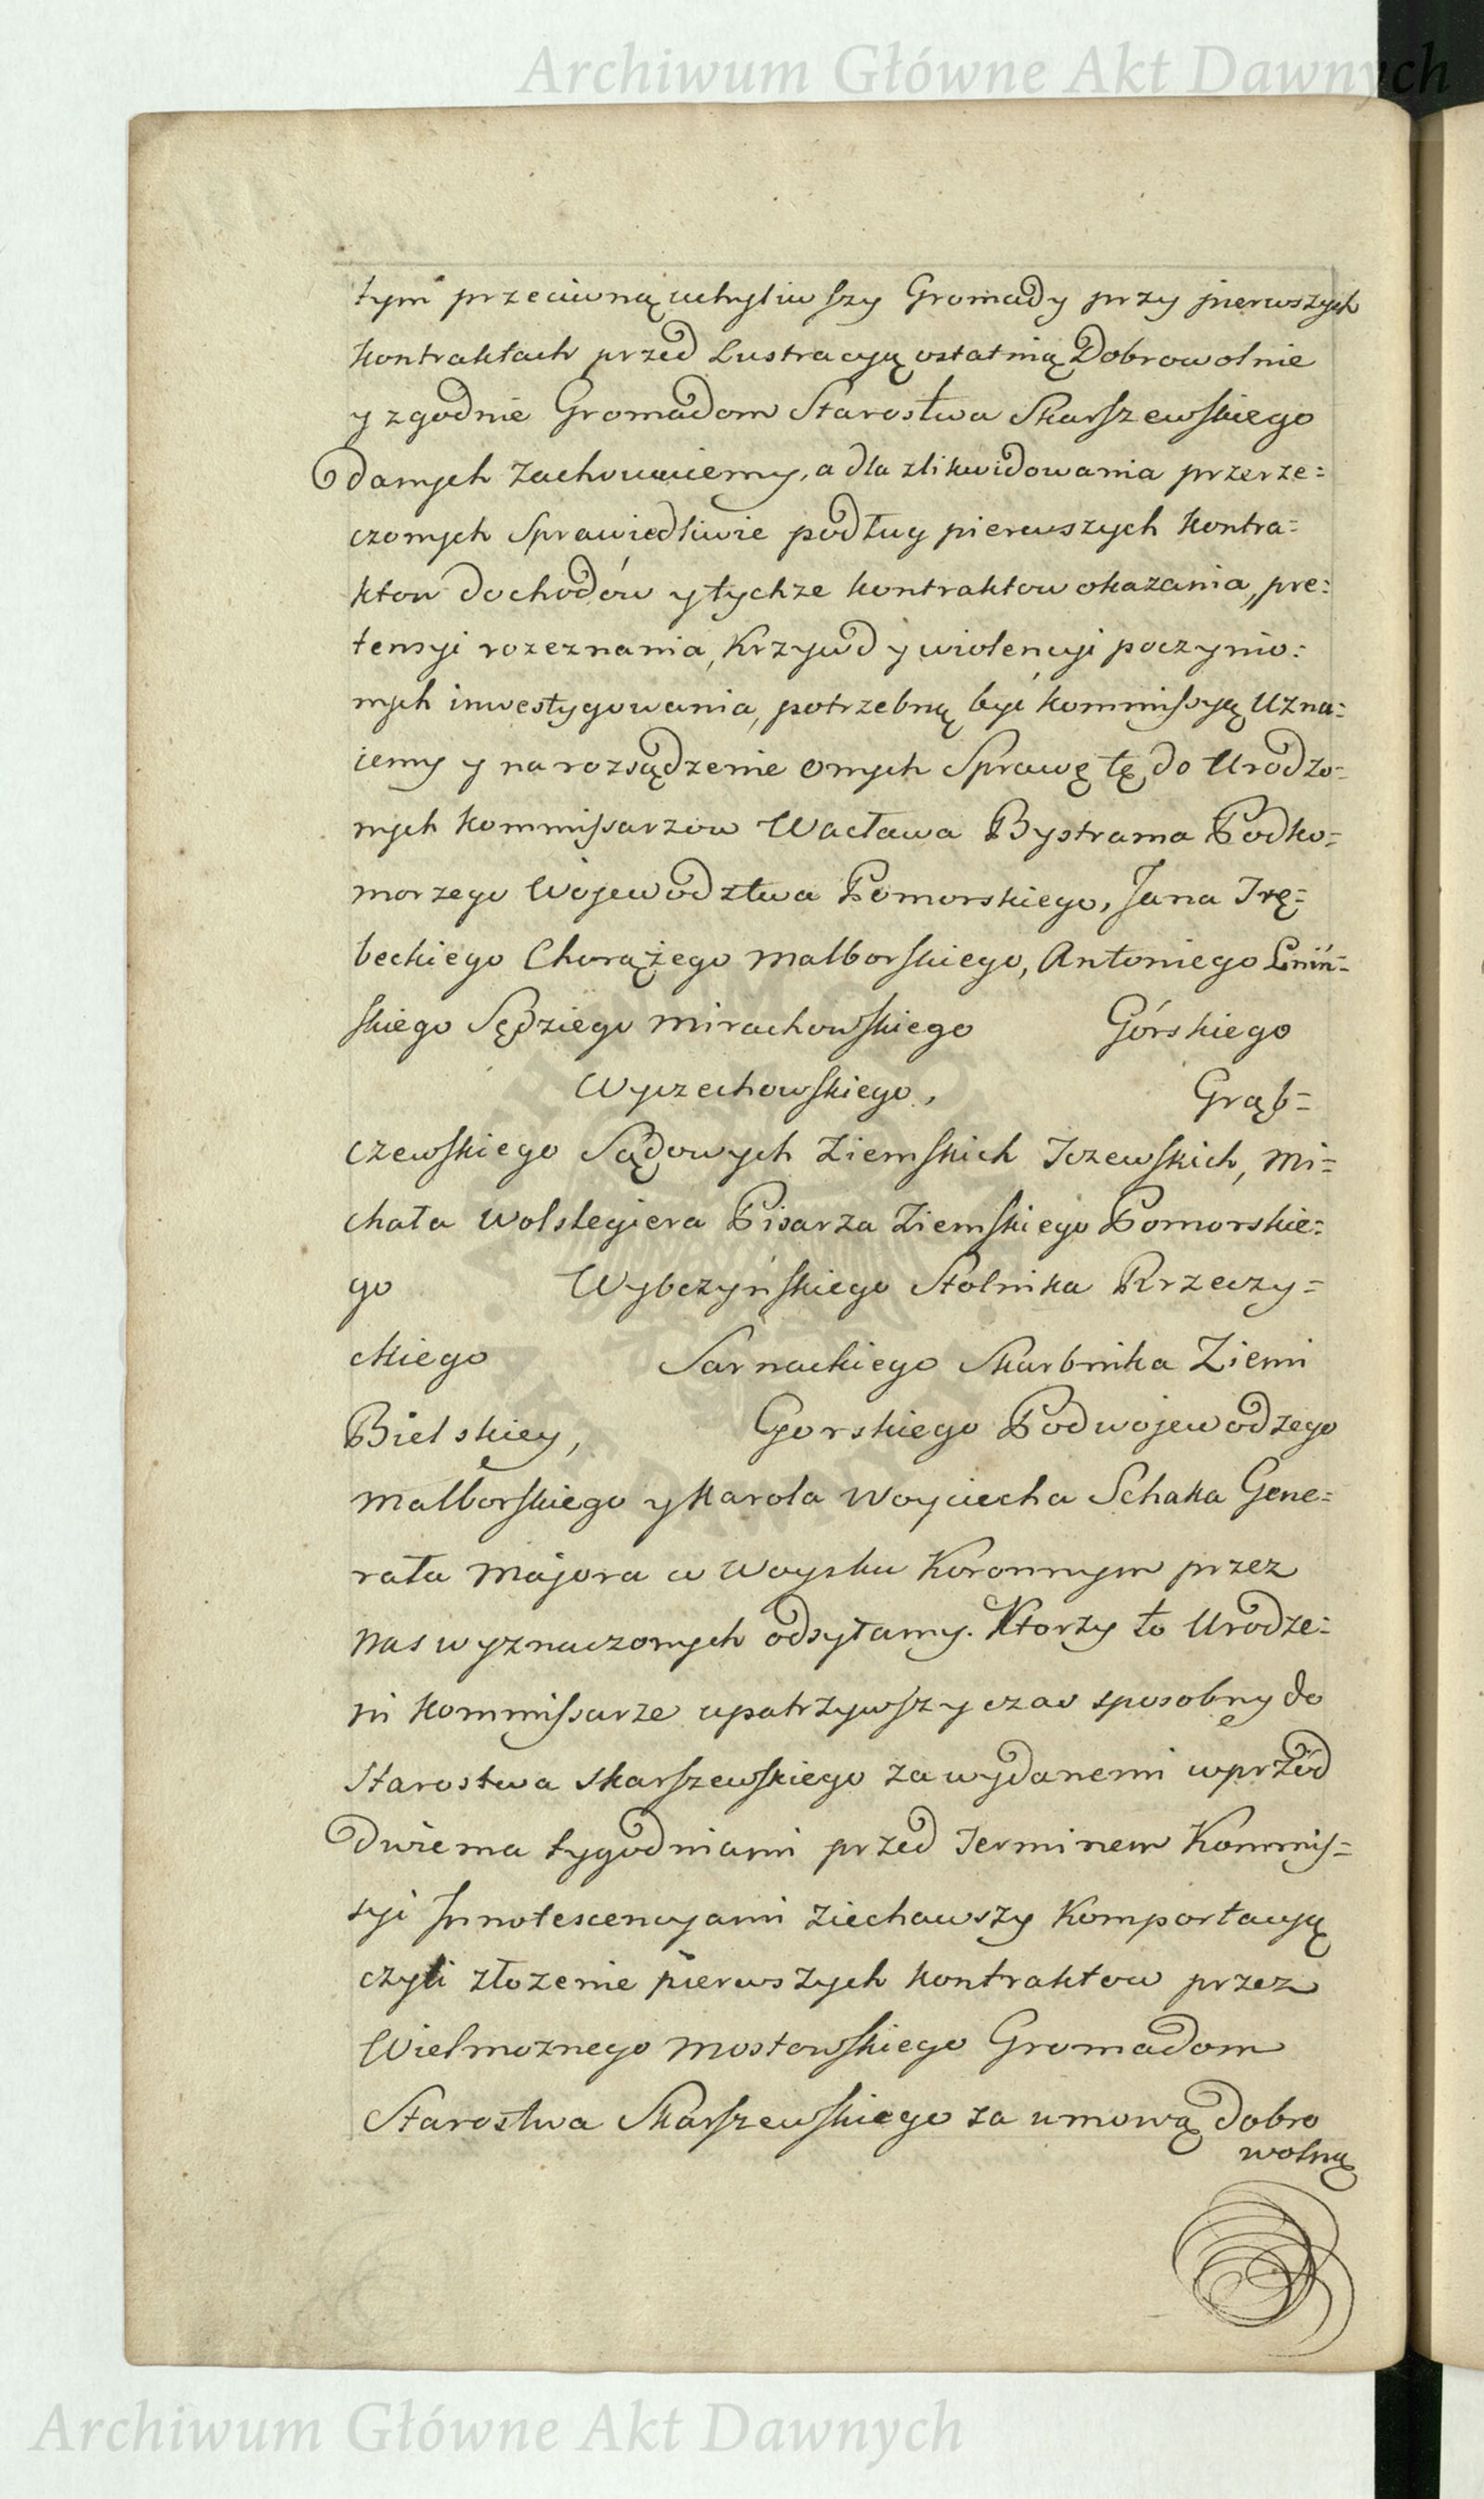 Archiwum Główne Akt Dawnych
tym przeciwną uchyliwszy Gromady przy pierwszych
kontraktach przed Lustracyą ostatnią Dobrowolnie
y zgodnie Gromadom Starostwa Skarszewskiego
danych zachowuiemy, a dla zlikwidowania przerze=
czonych Sprawiedliwie podług pierwszych kontra=
ktow dochodów y tychze kontraktow okazania, pre=
tensyi rozeznania, Krzywd y wiolencyi poczynio=
nych inwestygowania, potrzebną być kommissyą Uzna=
iemy y na rozsądzenie onych Sprawę tę do Urodzo=
nych kommissarzow Wacława Bystrama Podko=
morzego Wojewodztwa Pomorskiego, Jana Trę=
beckiego Chorążego Malborskiego, Antoniego Lniń=
skiego Sędziego Mirachowskiego Górskiego
Wyczechowskiego, Grąb=
czewskiego Sądowych Ziemskich Tczewskich, Mi=
chała Wolslegiera Pisarza Ziemskiego Pomorskie=
go Wybczyńskiego Stolnika Rzeczy=
ckiego Sarnackiego Skarbnika Ziemi
Bielskiey, Gorskiego Podwojewodzego
Malborskiego y Karola Woyciecha Schaka Gene=
rała Majora w Woysku Koronnym przez
nas wyznaczonych odsyłamy. Ktorzy to Urodze=
ni kommissarze upatrzywszy czas sposobny do
Starostwa Skarszewskiego za wydanemi wprzód
Dwiema tygodniami przed Terminem Kommis=
syi Innotescencyami ziechawszy Komportacyą
czyli złozenie pierwszych kontraktow przez
Wielmoznego Mostowskiego Gromadom
Starostwa Skarszewskiego za umową dobro
wolną
Archiwum Główne Akt Dawnych